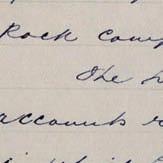 Rock comp
The h
accounts r